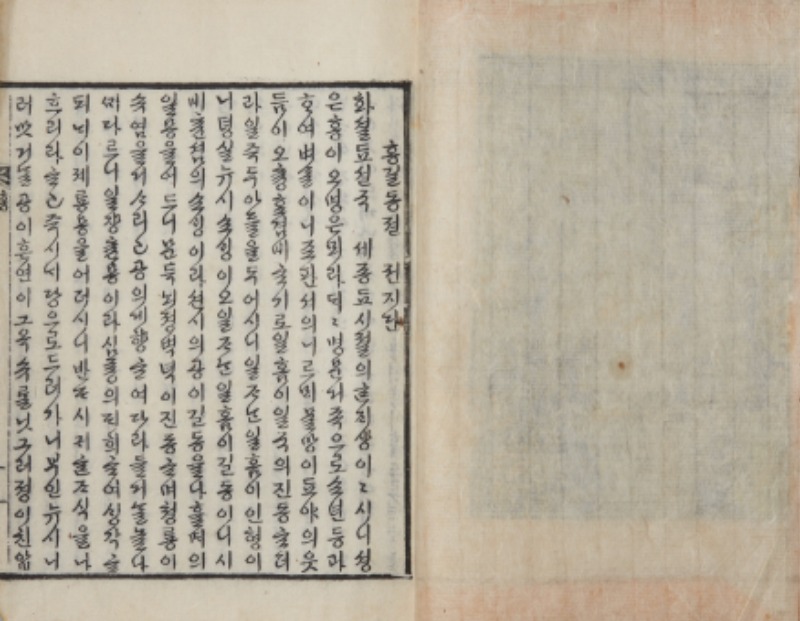 홍길동젼 권지단
화셜 됴션국 셰종됴 시졀의 ᄒᆞᆫ ᄌᆡ샹이 〻시니 셩
은 홍이오 명은 뫼라 ᄃᆡ〻 명문거족으로 쇼년 등과
ᄒᆞ여 벼ᄉᆞᆯ이 니조판셔의 니르ᄆᆡ 물망이 됴야의 웃
듬이오 츙효겸비ᄒᆞ기로 일홈이 일국의 진동ᄒᆞ더
라 일즉 두 아들을 두어시니 일ᄌᆞᄂᆞᆫ 일홈이 인형이
니 뎡실 뉴시 쇼ᄉᆡᆼ이오 일ᄌᆞᄂᆞᆫ 일홈이 길동이니 시
비 츈셤의 쇼ᄉᆡᆼ이라 션시의 공이 길동을 나흘 ᄯᆡ의
일몽을 어드니 문득 뇌졍벽녁이 진동ᄒᆞ며 쳥룡이
슈염을 거ᄉᆞ리고 공의게 향ᄒᆞ여 다라들거ᄂᆞᆯ 놀나
ᄭᆡ다르니 일쟝츈몽이라 심즁의 ᄃᆡ희ᄒᆞ여 ᄉᆡᆼ각ᄒᆞ
되 ᄂᆡ 이제 룡몽을 어더시니 반ᄃᆞ시 귀ᄒᆞᆫ ᄌᆞ식을 나
흐리라 ᄒᆞ고 즉시 ᄂᆡ당으로 드러가니 부인 뉴시 니
러 맛거ᄂᆞᆯ 공이 흔연이 그 옥슈를 닛그러 졍이 친압